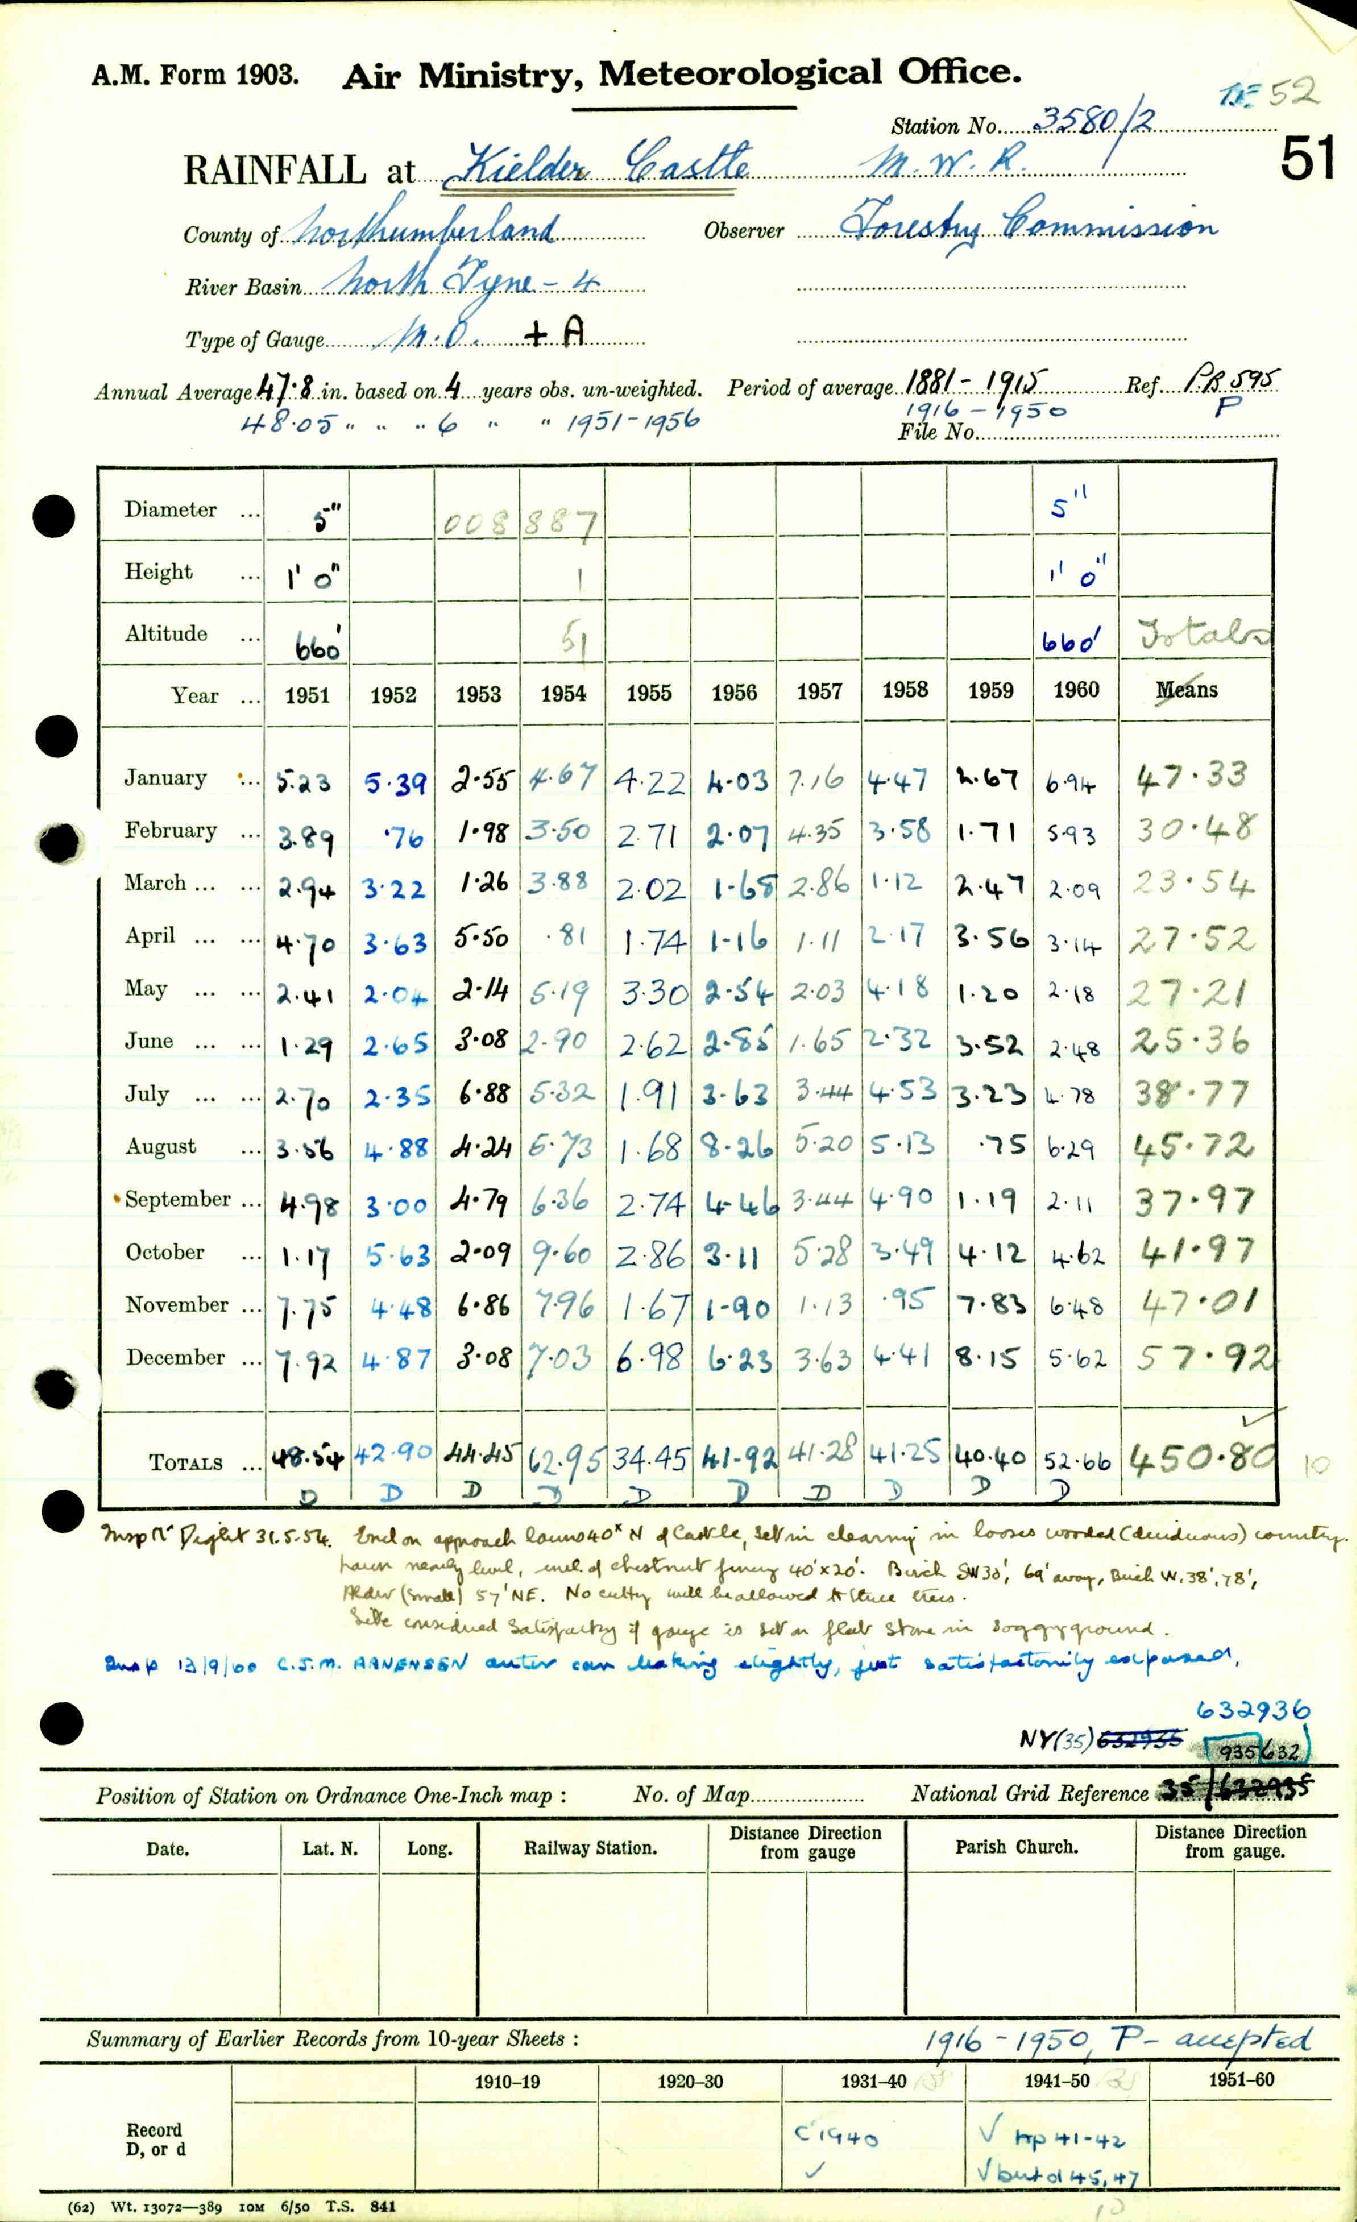 A.M. Form 1903. Air Ministry, Meteorological Office.
52
Station No. 3580/2
51
RAINFALL at Kielder Castle M.W.R.
County of Northumberland Observer Forestry Commission
River Basin North Tyne - 4
Type of Gauge M.O. + A
Annual Average 47.8 in. based on 4 years obs. un-weighted. Period of average 1881 - 1915 Ref. PR 595
48.05 " " " 6 " " 1951-1956 1916 - 1950 P
File No.
Diameter ... 5" 008 887 5"
Height ... 1' 0" 1 1' 0"
Altitude ... 660' 51 660' Totals
Year ... 1951 1952 1953 1954 1955 1956 1957 1958 1959 1960 Means
January ... 5.23 5.39 2.55 4.67 4.22 4.03 7.16 4.47 2.67 6.94 47.33
February ... 3.89 .76 1.98 3.50 2.71 2.07 4.35 3.58 1.71 5.93 30.48
March ... ... 2.94 3.22 1.26 3.88 2.02 1.68 2.86 1.12 2.47 2.09 23.54
April ... ... 4.70 3.63 5.50 .81 1.74 1.16 1.11 2.17 3.56 3.14 27.52
May ... ... 2.41 2.04 2.14 5.19 3.30 2.54 2.03 4.18 1.20 2.18 27.21
June ... ... 1.29 2.65 3.08 2.90 2.62 2.85 1.65 2.32 3.52 2.48 25.36
July ... ... 2.70 2.35 6.88 5.32 1.91 3.63 3.44 4.53 3.23 4.78 38.77
August ... 3.56 4.88 4.24 5.73 1.68 8.26 5.20 5.13 .75 6.29 45.72
September ... 4.98 3.00 4.79 6.36 2.74 4.46 3.44 4.90 1.19 2.11 37.97
October ... 1.17 5.63 2.09 9.60 2.86 3.11 5.28 3.49 4.12 4.62 41.97
November ... 7.75 4.48 6.86 7.96 1.67 1.90 1.13 .95 7.83 6.48 47.01
December ... 7.92 4.87 3.08 7.03 6.98 6.23 3.63 4.41 8.15 5.62 57.92
TOTALS ... 48.54 42.90 44.45 62.95 34.45 41.92 41.28 41.25 40.40 52.66 450.80 10
D D D D D D D D D D
Insp Mr Dight 31.5.54. End on approach lawns 40x N of Castle, set in clearing in loosely wooded (deciduous) country.
Lawn nearly level, encl. of chestnut fencing 40'x20'. Birch SW 30', 69' away, Birch W. 38', 78',
Alder (small) 57' NE. No cutting will be allowed to these trees.
Site considered satisfactory if gauge is set on flat stone in soggy ground.
Insp 13/9/60 C.J.M. AANENSEN outer can leaking slightly, just satisfactorily exposed.
632936
NY(35) 632935 935 632
Position of Station on Ordnance One-Inch map : No. of Map National Grid Reference 35/632935
Date. Lat. N. Long. Railway Station. Distance Direction from gauge Parish Church. Distance Direction from gauge.
Summary of Earlier Records from 10-year Sheets : 1916 - 1950, P - accepted
1910–19 1920–30 1931–40 1941–50 1951–60
Record D, or d
C 1940 √ np 41-42
✓ √ but d 45, 47
(62) Wt. 13072—389 10M 6/50 T.S. 841
10